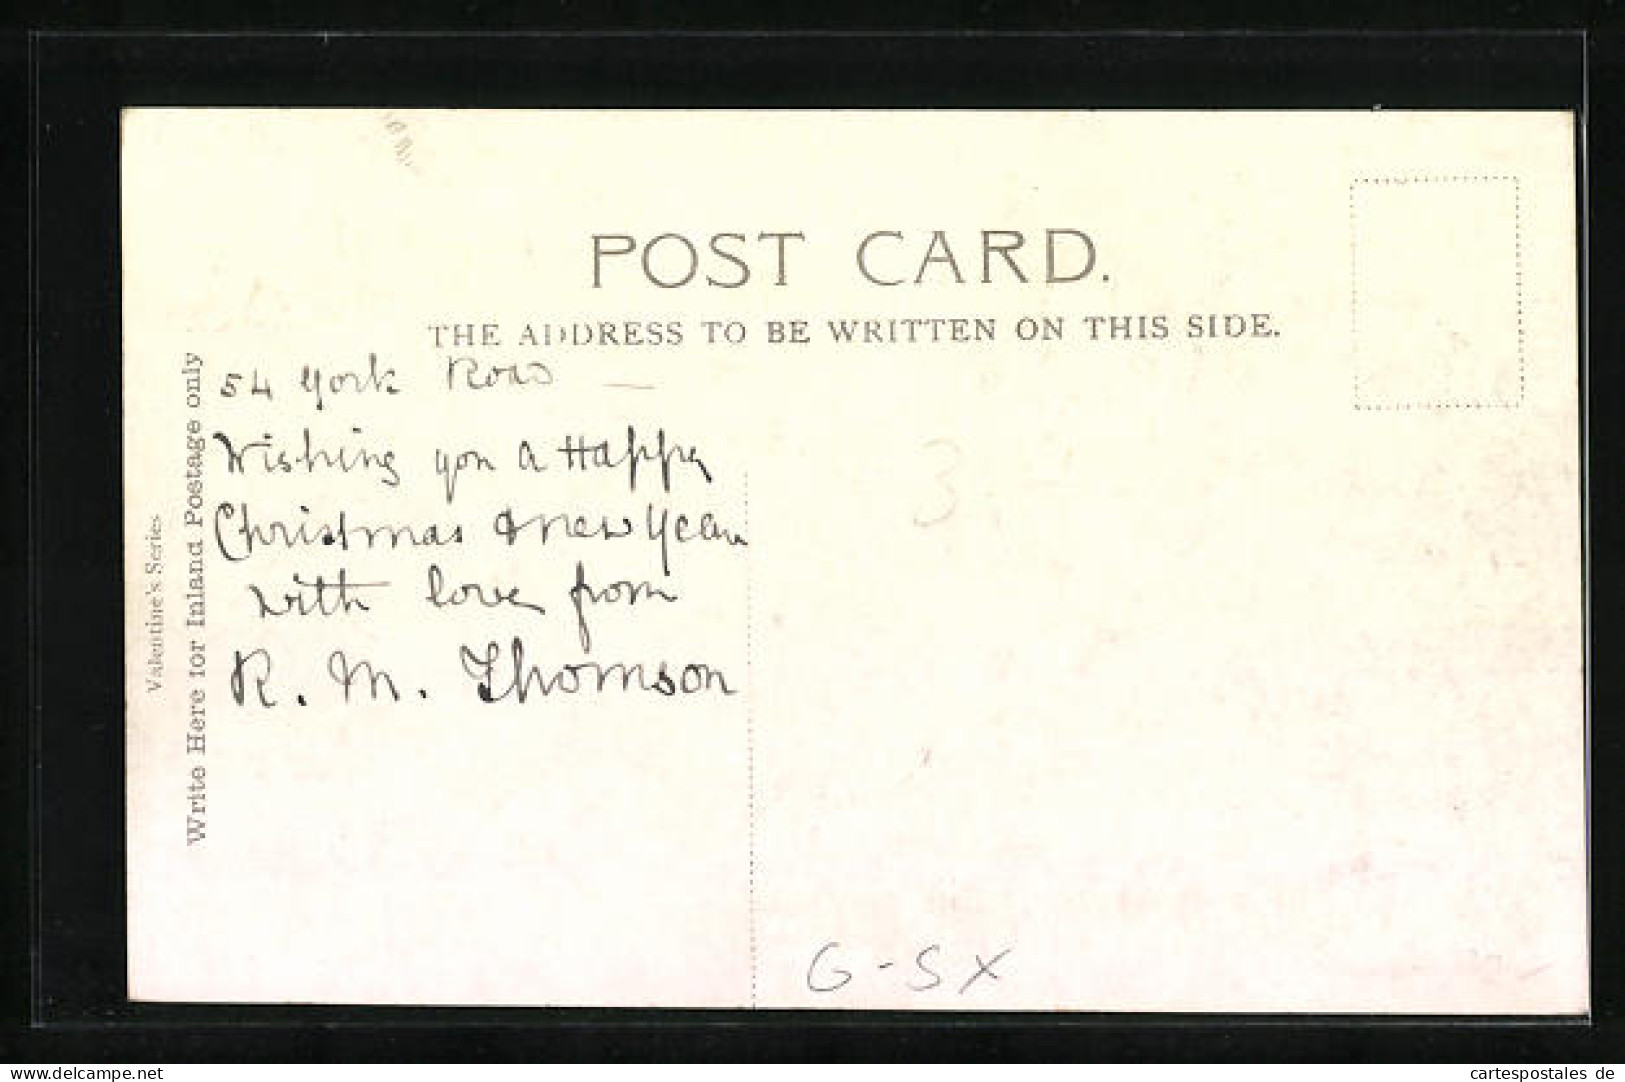 POST CARD.
THE ADDRESS TO BE WRITTEN ON THIS SIDE.
Valentine's Series
Write Here for Inland Postage only
54 York Road
Wishing you a Happy
Christmas & new Year
with love from
R. M. Thomson
3
G-SX
www.cartespostales.de
cartespostales de